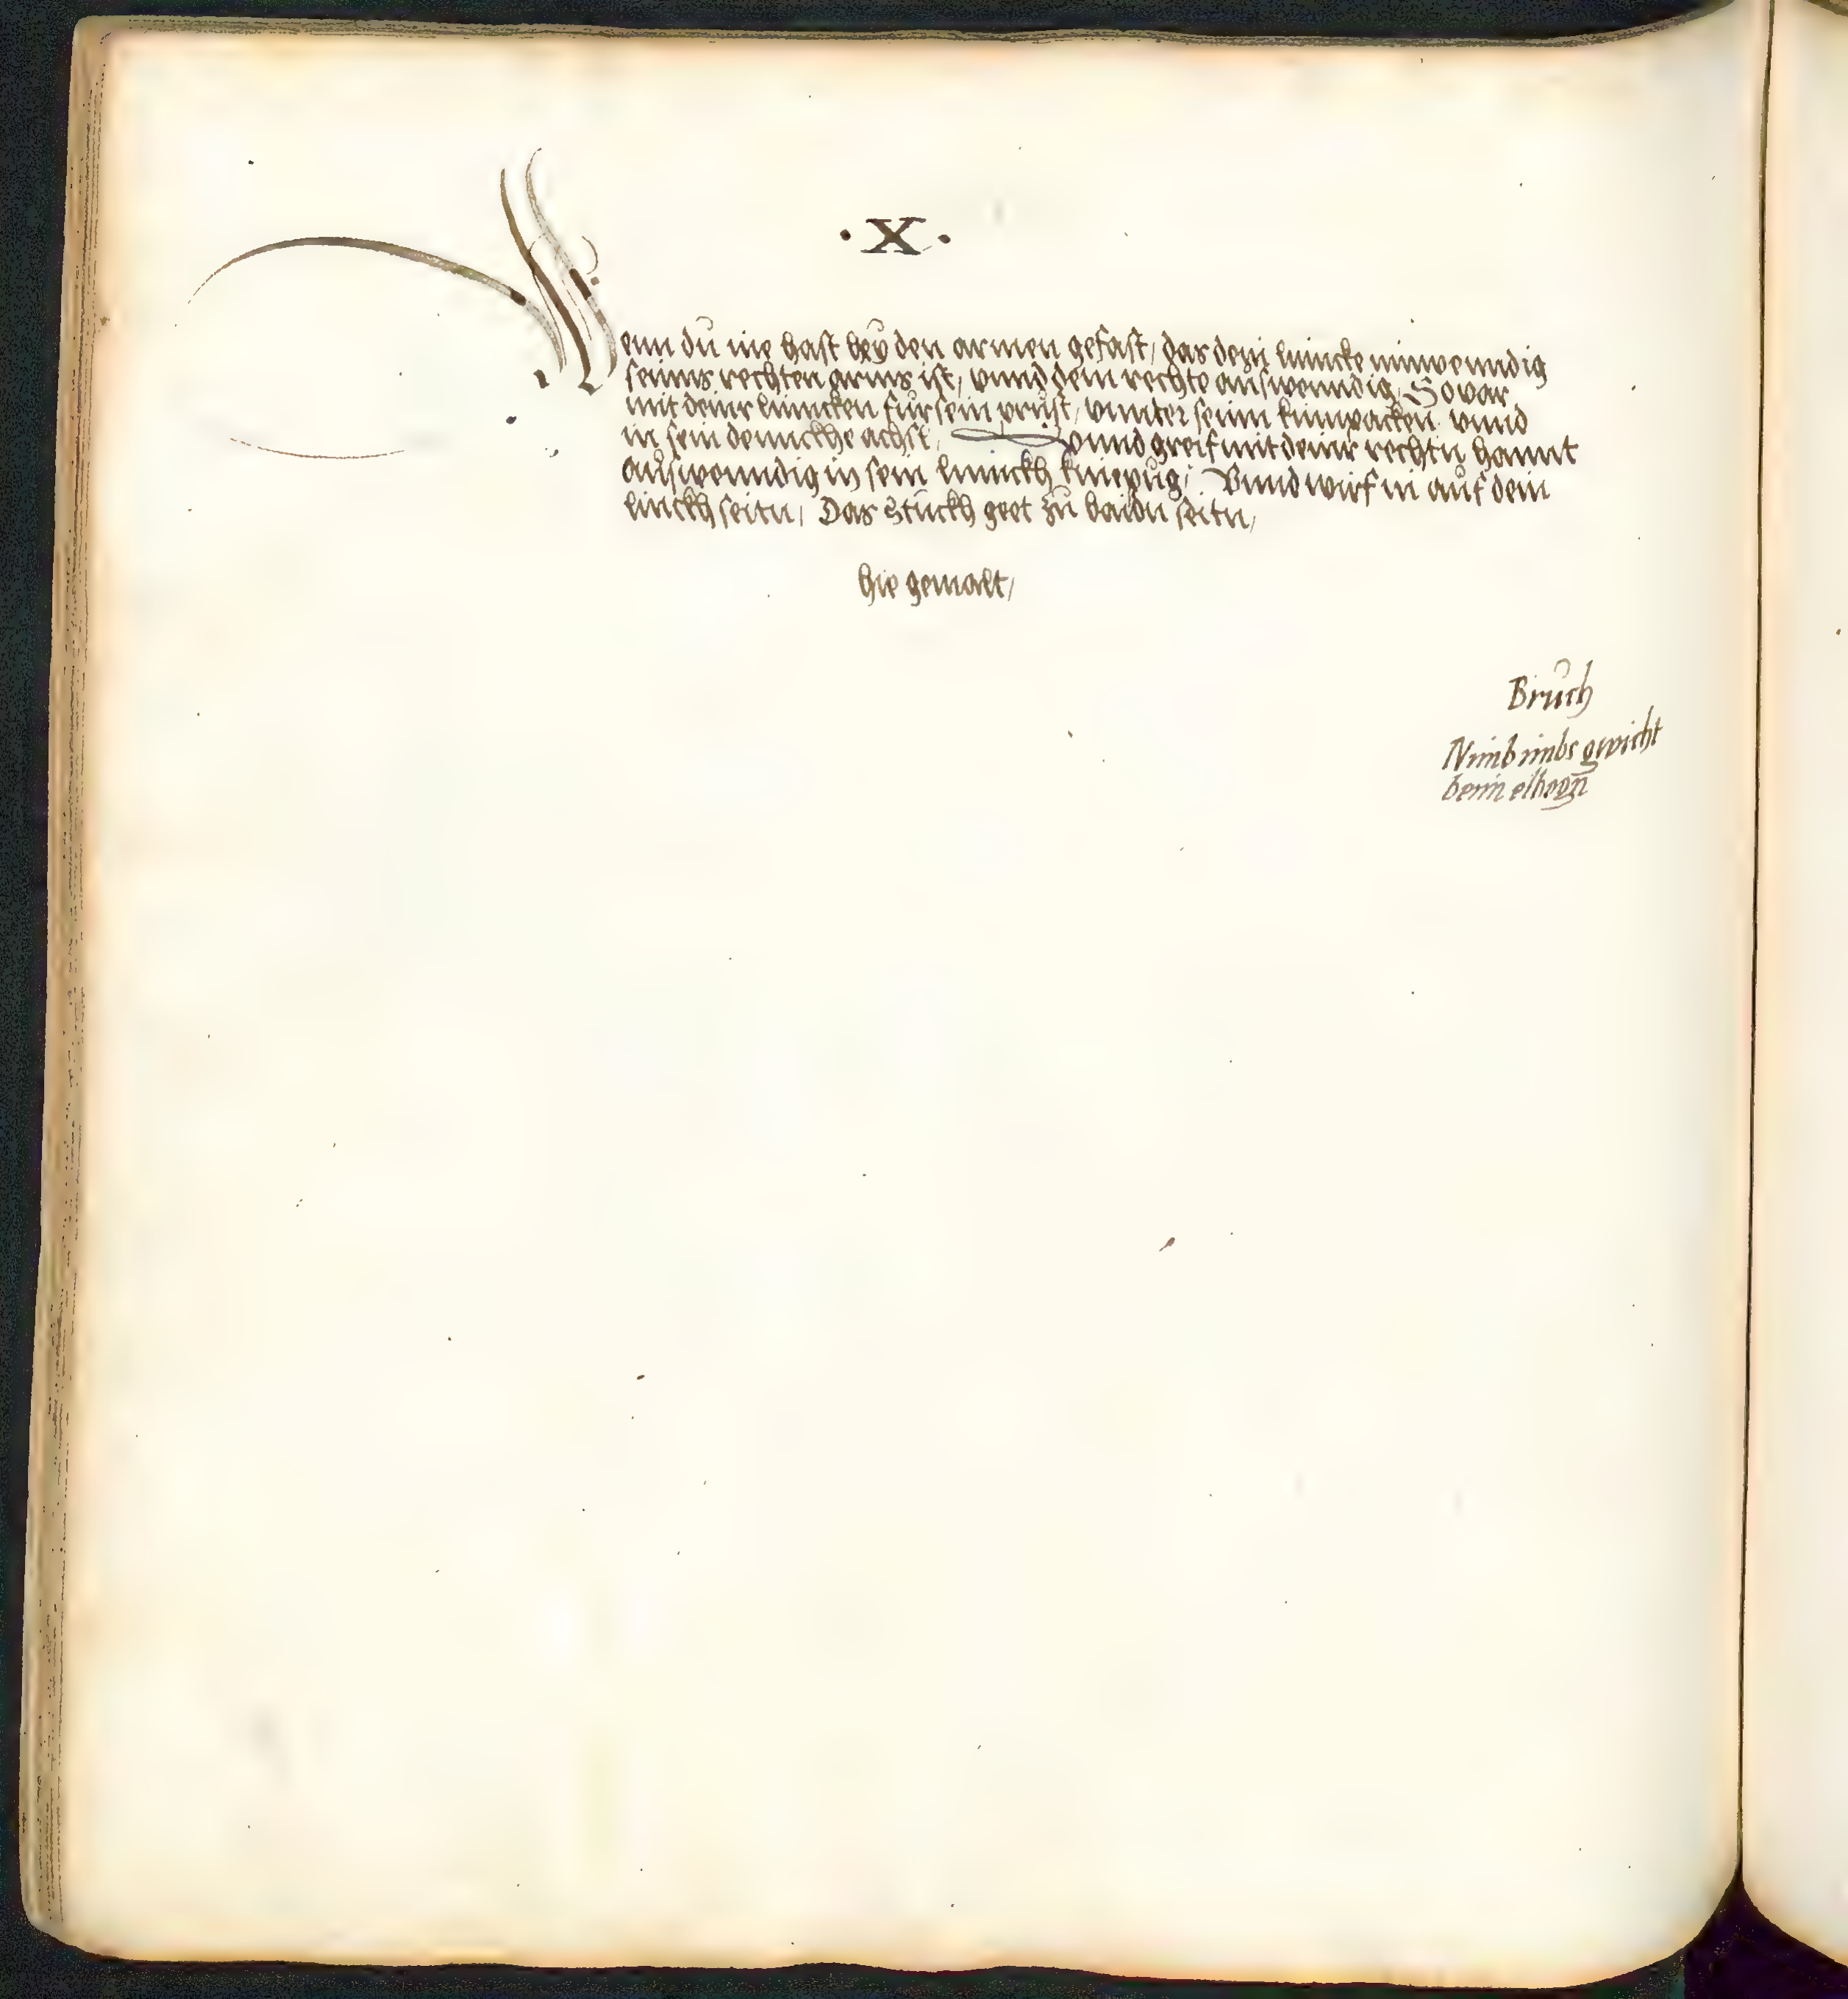 · X ·
Wenn dů ine hast beÿ den armen gefast, das dein lincke innwenndig
seinns rechten arms ist, vnnd dein rechte aůswenndig, So var
mit deinr linncken für sein průst, vnnter seim kinnpacken vnnd
in sein dennckhe achsl, vnnd greif mit deinr rechtn hannt
aůswenndig in sein linnckh kniepůg, Vnnd wirf in aůf dein
linckh seitn, Das Stůckh geet zů baidn seitn,
hie gemalt,
Brůch
Nimb imbs gwicht
beim elbogn̄